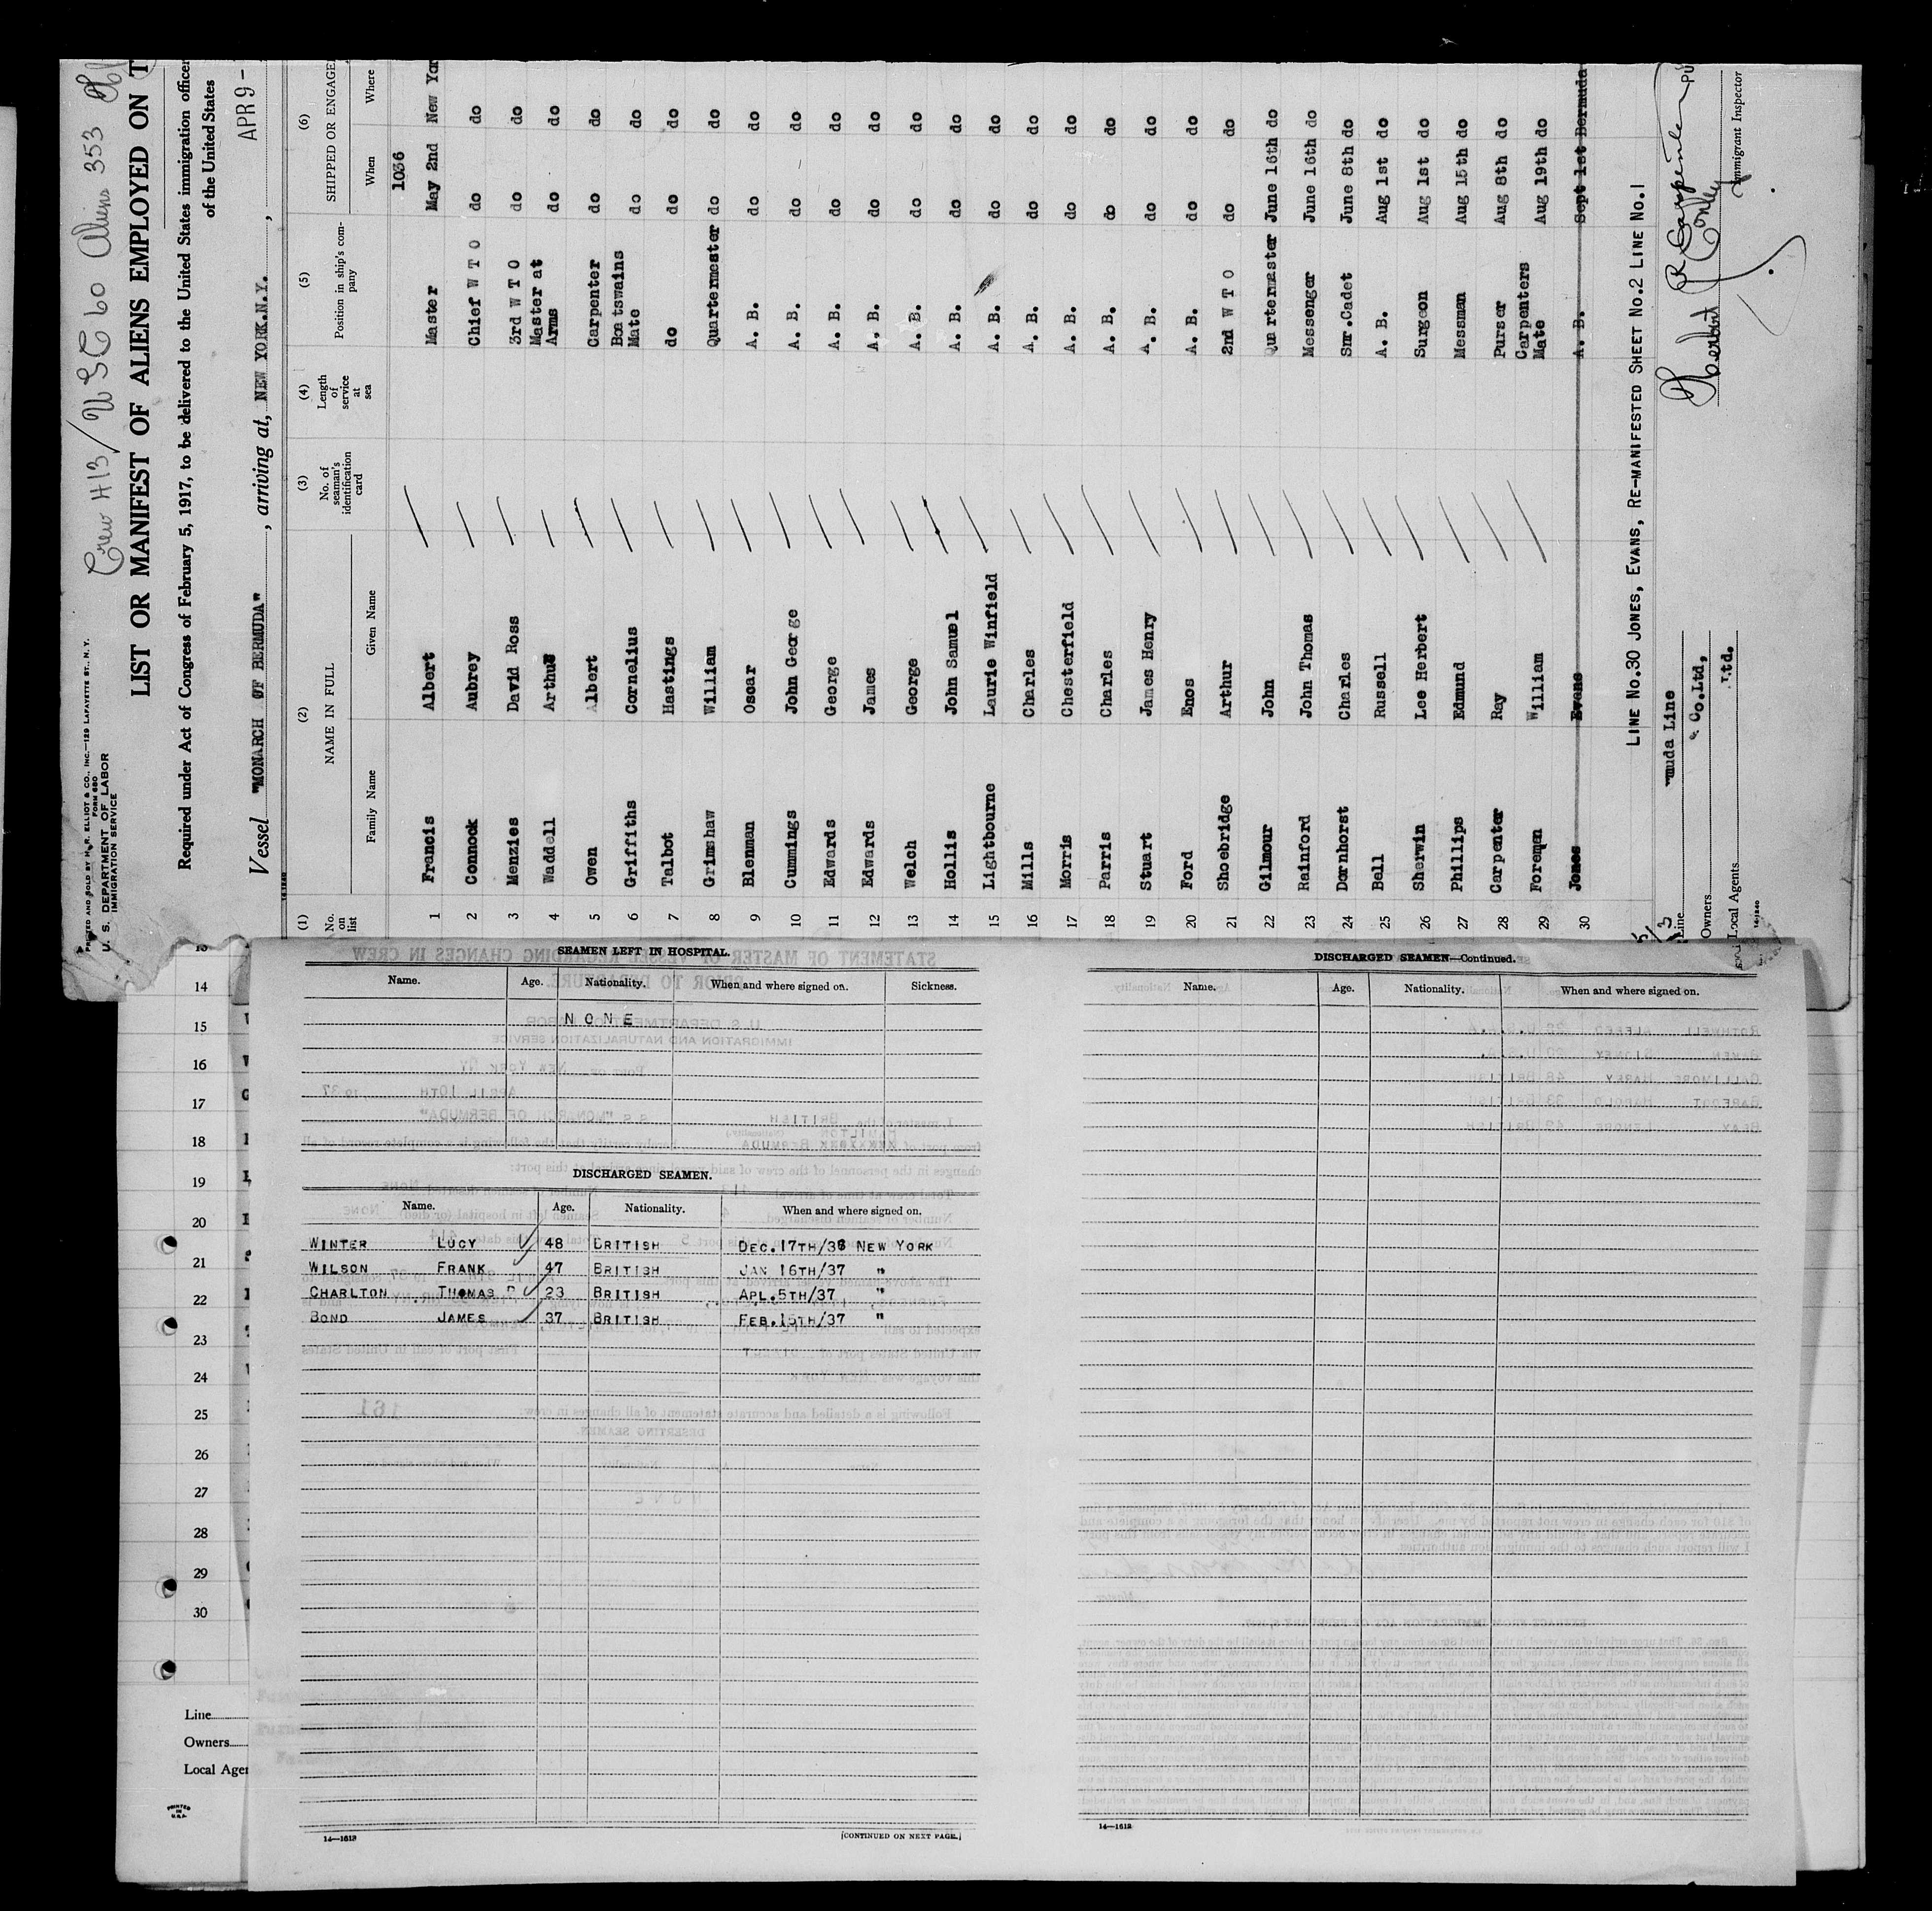 Crew 413/ USC 60 Aliens 353
PRINTED AND SOLD BY H. R. ELLIOT & CO., INC.—129 LAFAYETTE ST., N. Y.
FORM 680
U. S. DEPARTMENT OF LABOR
IMMIGRATION SERVICE
LIST OR MANIFEST OF ALIENS EMPLOYED ON T
Required under Act of Congress of February 5, 1917, to be delivered to the United States immigration officer
of the United States
Vessel "MONARCH OF BERMUDA", arriving at, NEW YORK.N.Y., APR 9 -
(1) (2) (3) (4) (5) (6)
No. on list NAME IN FULL No. of seaman's identification card Length of service at sea Position in ship's company SHIPPED OR ENGAGED
Family Name Given Name When Where
1036
1 Francis Albert Master May 2nd New Yor
2 Connock Aubrey Chief W T O do do
3 Menzies David Ross 3rd W T O do do
4 Waddell Arthur Master at Arms do do
5 Owen Albert Carpenter do do
6 Griffiths Cornelius Boatswains Mate do do
7 Talbot Hastings do do do
8 Grimshaw William Quartermester do do
9 Blenman Oscar A. B. do do
10 Cummings John George A. B. do do
11 Edwards George A. B. do do
12 Edwards James A. B. do do
13 Welch George A. B. do do
14 Hollis John Samuel A. B. do do
15 Lightbourne Laurie Winfield A. B. do do
16 Mills Charles A. B. do do
17 Morris Chesterfield A. B. do do
18 Parris Charles A. B. do do
19 Stuart James Henry A. B. do do
20 Ford Enos A. B. do do
21 Shoebridge Arthur 2nd W T O do do
22 Gilmour John Quartermaster June 16th do
23 Rainford John Thomas Messenger June 16th do
24 Dornhorst Charles Snr.Cadet June 8th do
25 Bell Russell A. B. Aug 1st do
26 Sherwin Lee Herbert Surgeon Aug 1st do
27 Phillips Edmund Messman Aug 15th do
28 Carpenter Ray Purser Aug 8th do
29 Foreman William Carpenters Mate Aug 19th do
30 Jones Evans A. B. Sept 1st Bermuda
LINE NO.30 JONES, EVANS, RE-MANIFESTED SHEET NO.2 LINE NO.1
Line muda Line
Owners Co.Ltd,
Local Agents Ltd.
R Carpenter PU
Herbert Conley
Immigrant Inspector
SEAMEN LEFT IN HOSPITAL.
Name. Age. Nationality. When and where signed on. Sickness.
NONE
DISCHARGED SEAMEN.
Name. Age. Nationality. When and where signed on.
WINTER LUCY 48 BRITISH DEC.17TH/36 NEW YORK
WILSON FRANK 47 BRITISH JAN 16TH/37 "
CHARLTON THOMAS P 23 BRITISH APL.5TH/37 "
BOND JAMES 37 BRITISH FEB.15TH/37 "
14—1613
[CONTINUED ON NEXT PAGE.]
DISCHARGED SEAMEN—Continued.
Name. Age. Nationality. When and where signed on.
14—1613
14
15
16
17
18
19
20
21
22
23
24
25
26
27
28
29
30
Line
Owners
Local Agen
PRINTED
IN
U.S.A.